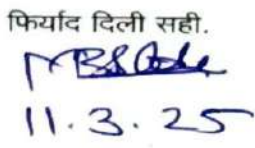 फिर्याद दिली सही.
11.3.25